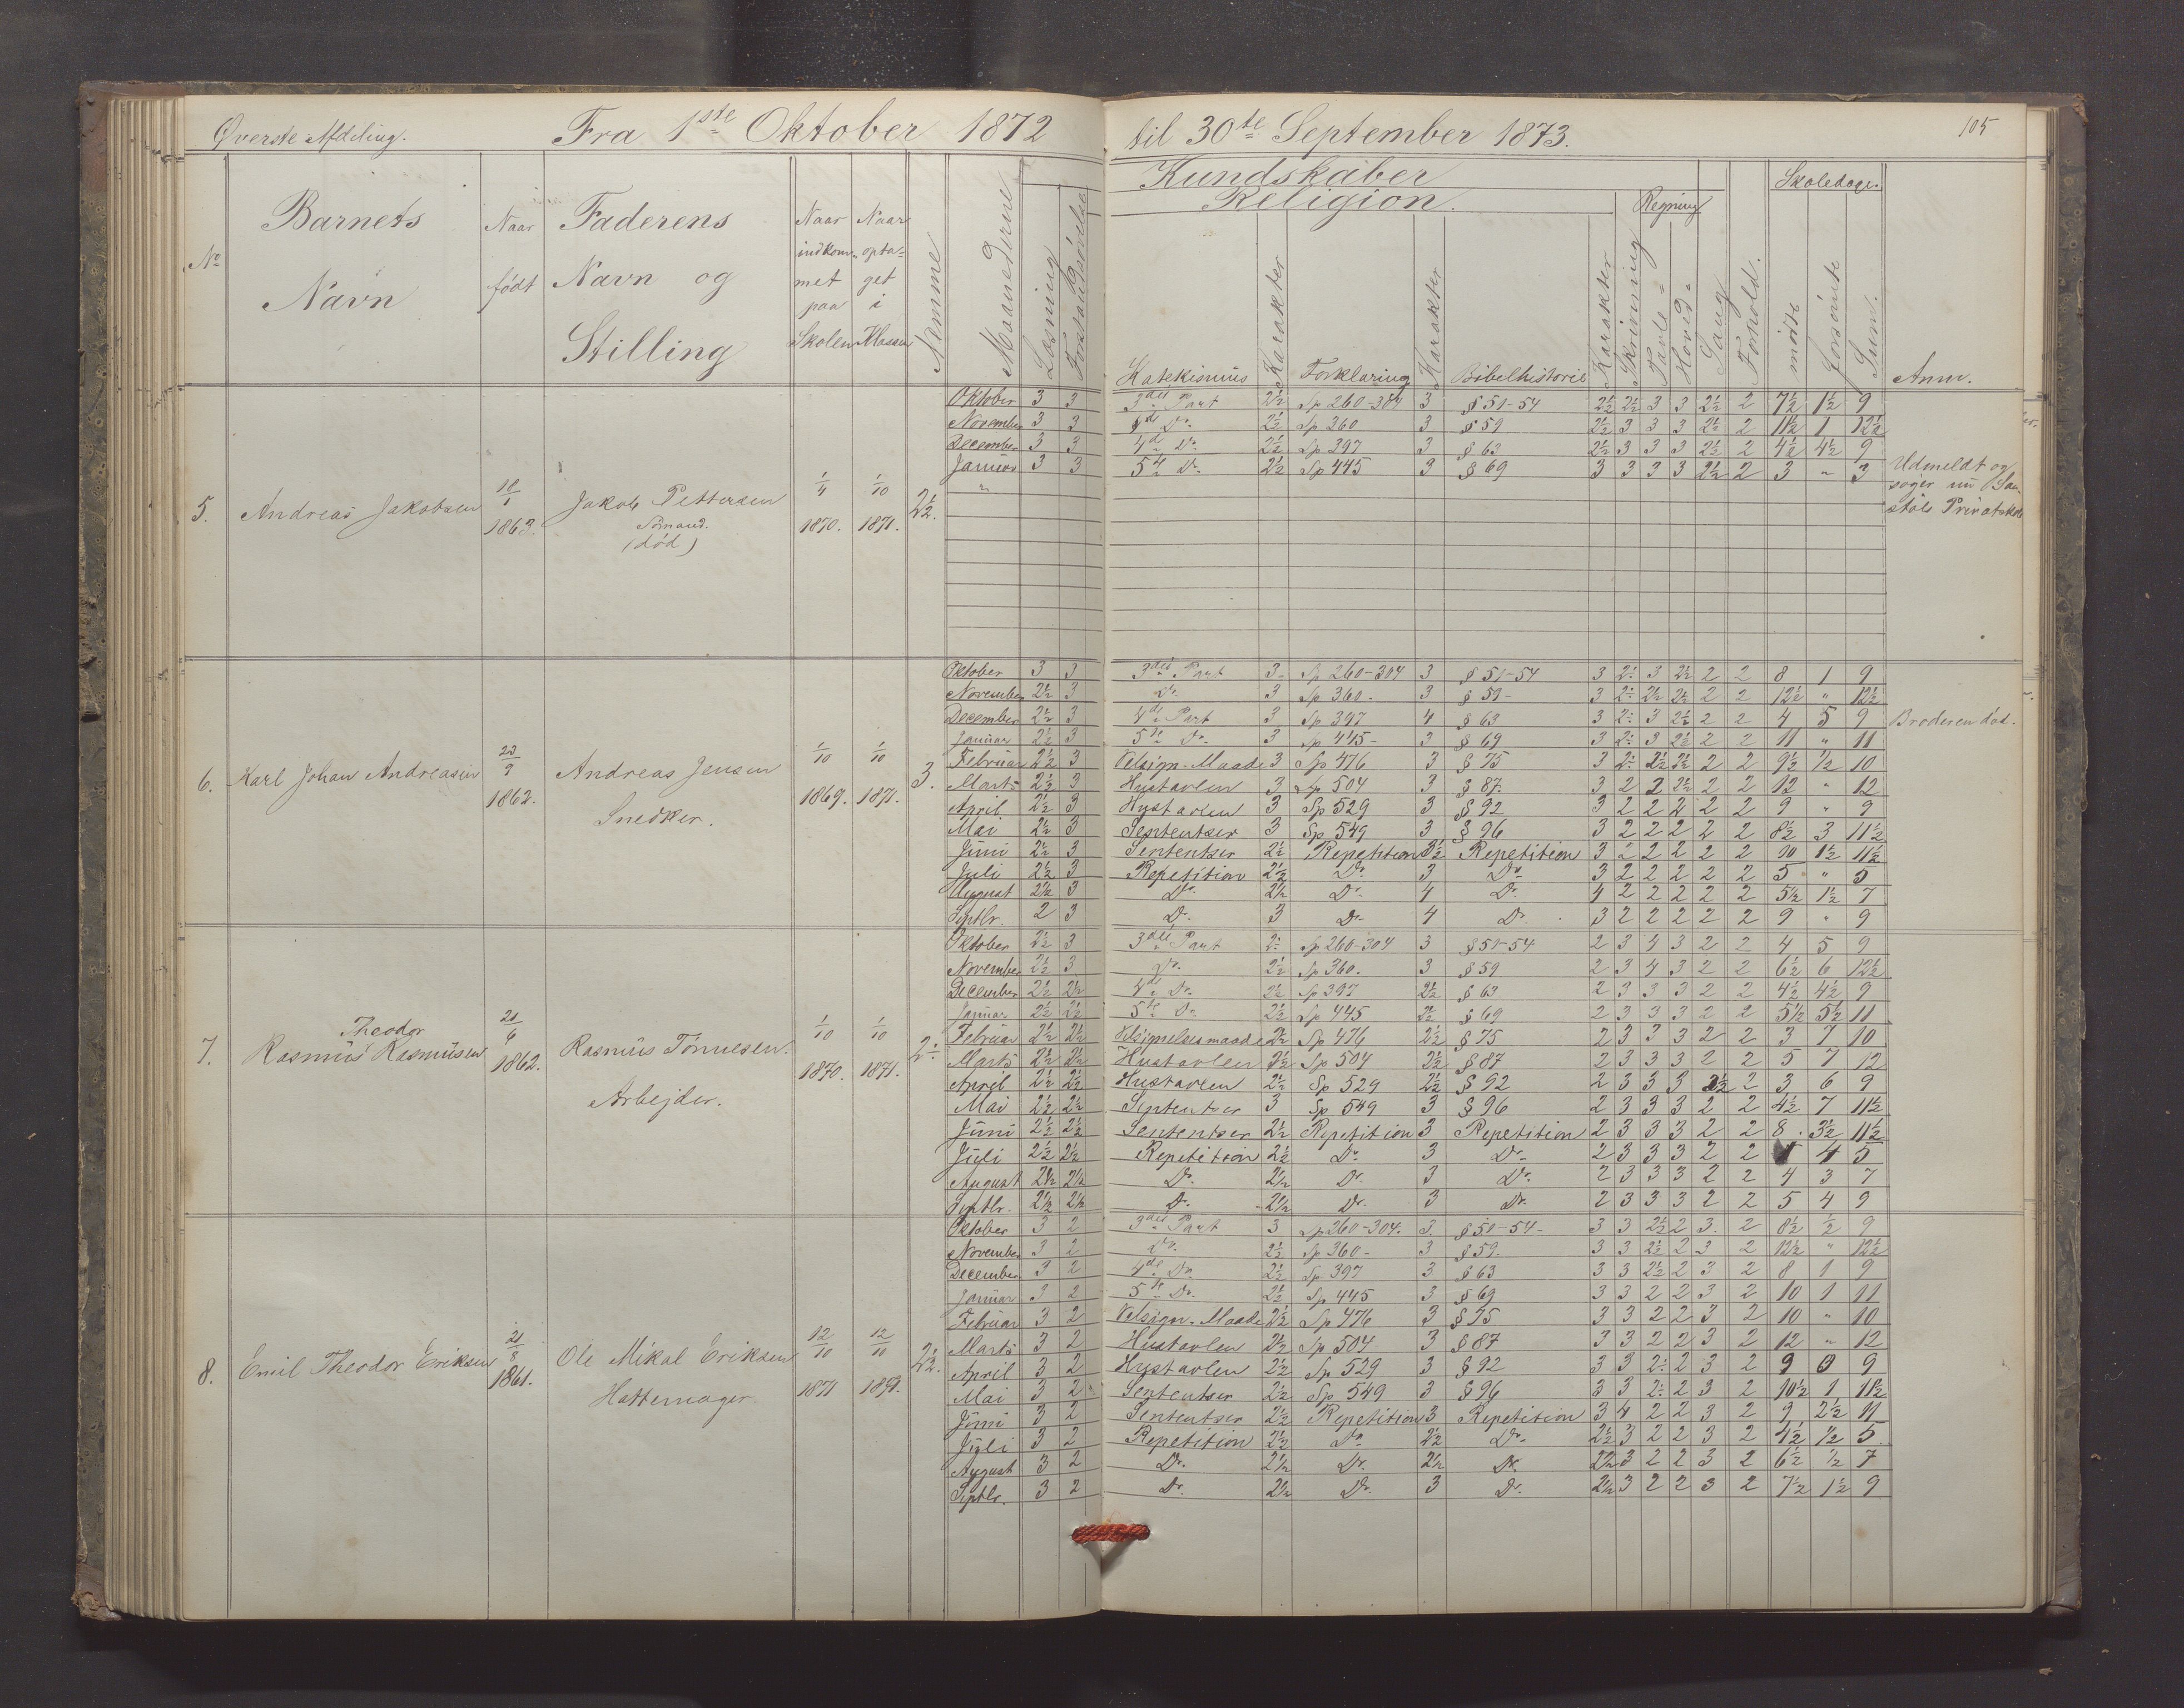 Øverste Afdeling. Fra 1ste Oktober 1872 til 30te September 1873. 105
No
Barnets Navn
Naar født
Faderens Navn og Stilling
Naar indkommet paa Skolen
Naar optaget i Klassen
Nemme
Maanederne
Læsning
Forstandsøvelse
Kundskaber
Religion.
Katekismus
Karakter
Forklaring
Karakter
Bibelhistorie
Karakter
Skrivning
Regning
Tavle-
Hoved-
Sang
Forhold.
Skoledage.
mødte
forsømte
Sum.
Anm.
5. Andreas Jakobsen 18/1 1863. Jakob Pettersen Sømand. (død) 1/4 1870. 1/10 1871. 2½.
Oktober 3 3 3die Part 2½ Sp 260-304 3 § 51-54 2½ 2½ 3 3 2½ 2 7½ 1½ 9
November 3 3 Do. 2½ Sp 360 3 § 59 2½ 3 3 3 2½ 2 11½ 1 12½
December 3 3 4de Do. 2½ Sp 397 3 § 63 2½ 3 3 3 2½ 2 4½ 4½ 9
Januar 3 3 5te Do. 2½ Sp 445 3 § 69 3 3 3 3 2½ 2 3 " 3
Udmeldt og
søger nu
Privatskole
6. Karl Johan Andreasen 23/9 1862. Andreas Jensen Snedker. 1/10 1869. 1/10 1871. 3.
Oktober 3 3 3die Part 3 Sp 260-304 3 § 51-54 3 2÷ 3 2½ 2 2 8 1 9
November 2½ 3 Do. 3 Sp 360- 3 § 59- 3 2÷ 2½ 2½ 2 2 12½ " 12½
December 2½ 3 4de Part 3 Sp 397 4 § 63 3 2÷ 3 2½ 2 2 4 5 9 Broderen død.
Januar 2½ 3 5te Do. 3 Sp 445- 3 § 69 3 2÷ 3 2½ 2 2 11 " 11
Februar 2½ 3 Velsign.-Maade 3 Sp 476 3 § 75 3 2÷ 2½ 2½ 2 2 9½ ½ 10
Marts 2½ 3 Hustavlen 3 Sp 504 3 § 87. 3 2 2 2½ 2 2 12 " 12
April 2½ 3 Hustavlen 3 Sp 529 3 § 92 3 2 2 2 2 2 9 " 9
Mai 2½ 3 Sententser 3 Sp 549 3 § 96 3 2 2 2 2 2 8½ 3 11½
Juni 2½ 3 Sententser 2½ Repetition 3½ Repetition 3 2 2 2 2 2 10 1½ 11½
Juli 2½ 3 Repetition 2½ Do. 3 Do. 3 2 2 2 2 2 5 " 5
August 2½ 3 Do. 2½ Do. 4 Do. 4 2 2 2 2 2 5½ 1½ 7
Septbr. 2 3 Do. 3 Do. 4 Do. 3 2 2 2 2 2 9 " 9
7. Rasmus Theodor Rasmussen 21/6 1862. Rasmus Tønnesen. Arbejder. 1/10 1870. 1/10 1871. 2÷
Oktober 2½ 3 3die Part 2÷ Sp 260-304 3 § 51-54 2 3 4 3 2 2 4 5 9
November 2½ 3 Do. 2½ Sp 360. 3 § 59 2 3 4 3 2 2 6½ 6 12½
December 2½ 2½ 4de Do. 2½ Sp 397 2½ § 63 2 3 3 3 2 2 4½ 4½ 9
Januar 2½ 2½ 5te Do. 2½ Sp 445 2½ § 69 2 3 3 3 2 2 5½ 5½ 11
Februar 2½ 2½ Velsignelsesmaade 2½ Sp 476 2½ § 75 2 3 3 3 2 2 3 7 10
Marts 2½ 2½ Hustavlen 2½ Sp 504 2½ § 87 2 3 3 3 2 2 5 7 12
April 2½ 2½ Hustavlen 2½ Sp 529 2½ § 92 2 3 3 3 2½ 2 3 6 9
Mai 2½ 2½ Sententser 3 Sp 549 3 § 96 2 3 3 3 2 2 4½ 7 11½
Juni 2½ 2½ Sententser 2½ Repetition 3 Repetition 2 3 3 3 2 2 8 3½ 11½
Juli 2½ 2½ Repetition 2½ Do. 3 Do. 2 3 3 3 2 2 1 4 5
August 2½ 2½ Do. 2½ Do. 3 Do. 2 3 3 3 2 2 4 3 7
Septbr. 2½ 2½ Do. 2½ Do. 3 Do. 2 3 3 3 2 2 5 4 9
8. Emil Theodor Eriksen 21/8 1861. Ole Mikal Eriksen Hattemager. 12/10 1871 12/10 1871. 2½.
Oktober 3 2 3die Part 3 Sp 260-304. 3 § 51-54- 3 3 2½ 2 3 2 8½ ½ 9
November 3 2 Do. 2½ Sp 360- 3 § 59- 3 3 2½ 2 3 2 12½ " 12½
December 3 2 4de Do 2½ Sp 397 3 § 63 3 3 2½ 2 3 2 8 1 9
Januar 3 2 5te Do. 2½ Sp 445 3 § 69 3 3 2 2 3 2 10 1 11
Februar 3 2 Velsign.-Maade 2½ Sp 476 3 § 75 3 3 2 2 3 2 10 " 10
Marts 3 2 Hustavlen 2½ Sp 504 3 § 87 3 3 2 2 3 2 12 " 12
April 3 2 Hustavlen 2½ Sp 529 3 § 92 3 3 2÷ 2 3 2 9 0 9
Mai 3 2 Sententser 2½ Sp 549 3 § 96 3 3 2÷ 2 3 2 10½ 1 11½
Juni 3 2 Sententser 2½ Repetition 3 Repetition 3 4 2 2 3 2 9 2½ 11
Juli 3 2 Repetition 2½ Do. 2½ Do. 2½ 3 2 2 3 2 4½ ½ 5
August 3 2 Do. 2½ Do. 2½ Do. 2½ 3 2 2 3 2 6½ ½ 7
Septbr. 3 2 Do. 2½ Do. 3 Do. 2½ 3 2 2 3 2 7½ 1½ 9